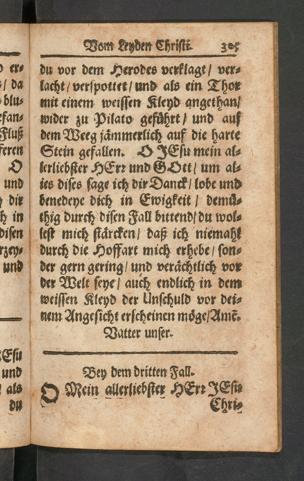 Vom Leyden Christi. 305
du vor dem Herodes verklagt / ver-
lacht / verspottet / und als ein Thor
mit einem weissen Kleyd angethan /
wider zu Pilato geführt / und auf
dem Weeg jämmerlich auf die harte
Stein gefallen. O JEsu mein al-
lerliebster HErr und GOtt / um al-
les dises sage ich dir Danck / lobe und
benedeye dich in Ewigkeit / demü-
thig durch disen Fall bittend / du wol-
lest mich stärcken / daß ich niemahl
durch die Hoffart mich erhebe / son-
der gern gering / und verächtlich vor
der Welt seye / auch endlich in dem
weissen Kleyd der Unschuld vor dei-
nem Angesicht erscheinen möge / Amẽ.
Vatter unser.
Bey dem dritten Fall.
O Mein allerliebster HErr JEsu
Chri-
er-
da
blu-
Fluß
O
und
dir
in
disen
und
JEsu
und
als
du